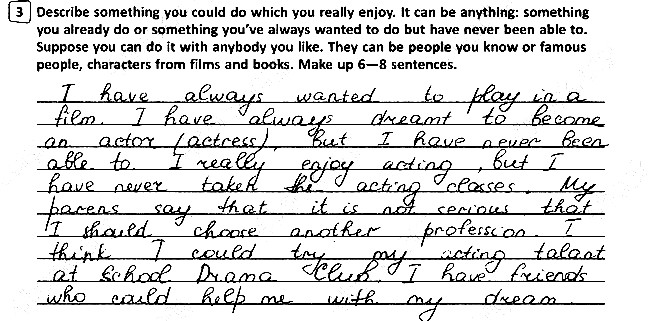 3 Describe something you could do which you really enjoy. It can be anything: something
you already do or something you've always wanted to do but have never been able to.
Suppose you can do it with anybody you like. They can be people you know or famous
people, characters from films and books. Make up 6—8 sentences.
I have always wanted to play in a
film. I have always dreamt to become
an actor (actress), But I have never been
able to. I really enjoy acting, but I
have never taken the acting classes. My
parens say that it is not serious that
I should choose another profession. I
think I could try my acting talant
at School Drama Club. I have friends
who could help me with my dream.